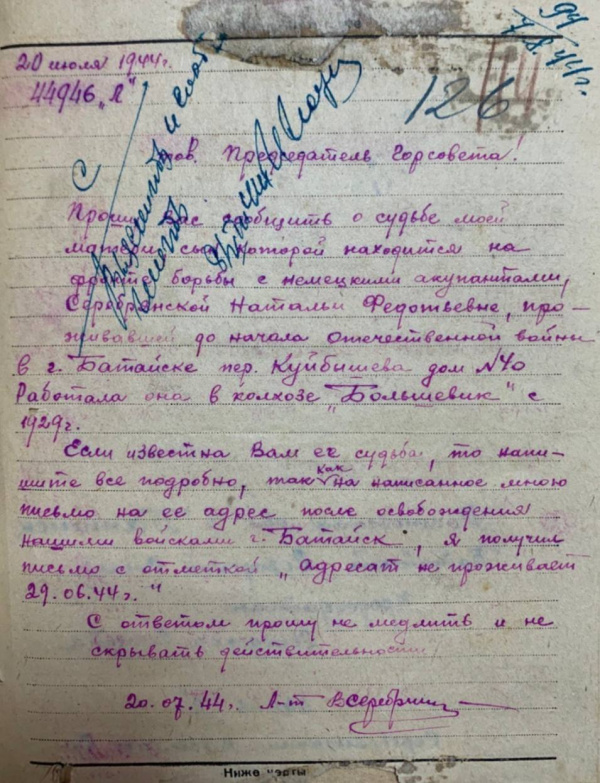 94
7/8 44г.
20 июля 1944г.
44946 „Л"
126
Тов. Председатель Горсовета!
Прошу Вас сообщить о судьбе моей
матери, сын которой находится на
фронте борьбы с немецкими акупантами,
Серебрянской Натальи Федотьевне, про-
живавшей до начала отечественной войны
в г. Батайске пер. Куйбышева дом №40
Работала она в колхозе „Большевик" с
1929г.
Если известна Вам ее судьба, то напи-
шите все подробно, так как на написанное мною
письмо на ее адрес после освобождения
нашими войсками г. Батайск, я получил
письмо с отметкой „адресат не проживает
29.06.44г."
С ответом прошу не медлить и не
скрывать действительности
20.07.44г. Л-т ВСеребрян
Ниже черты